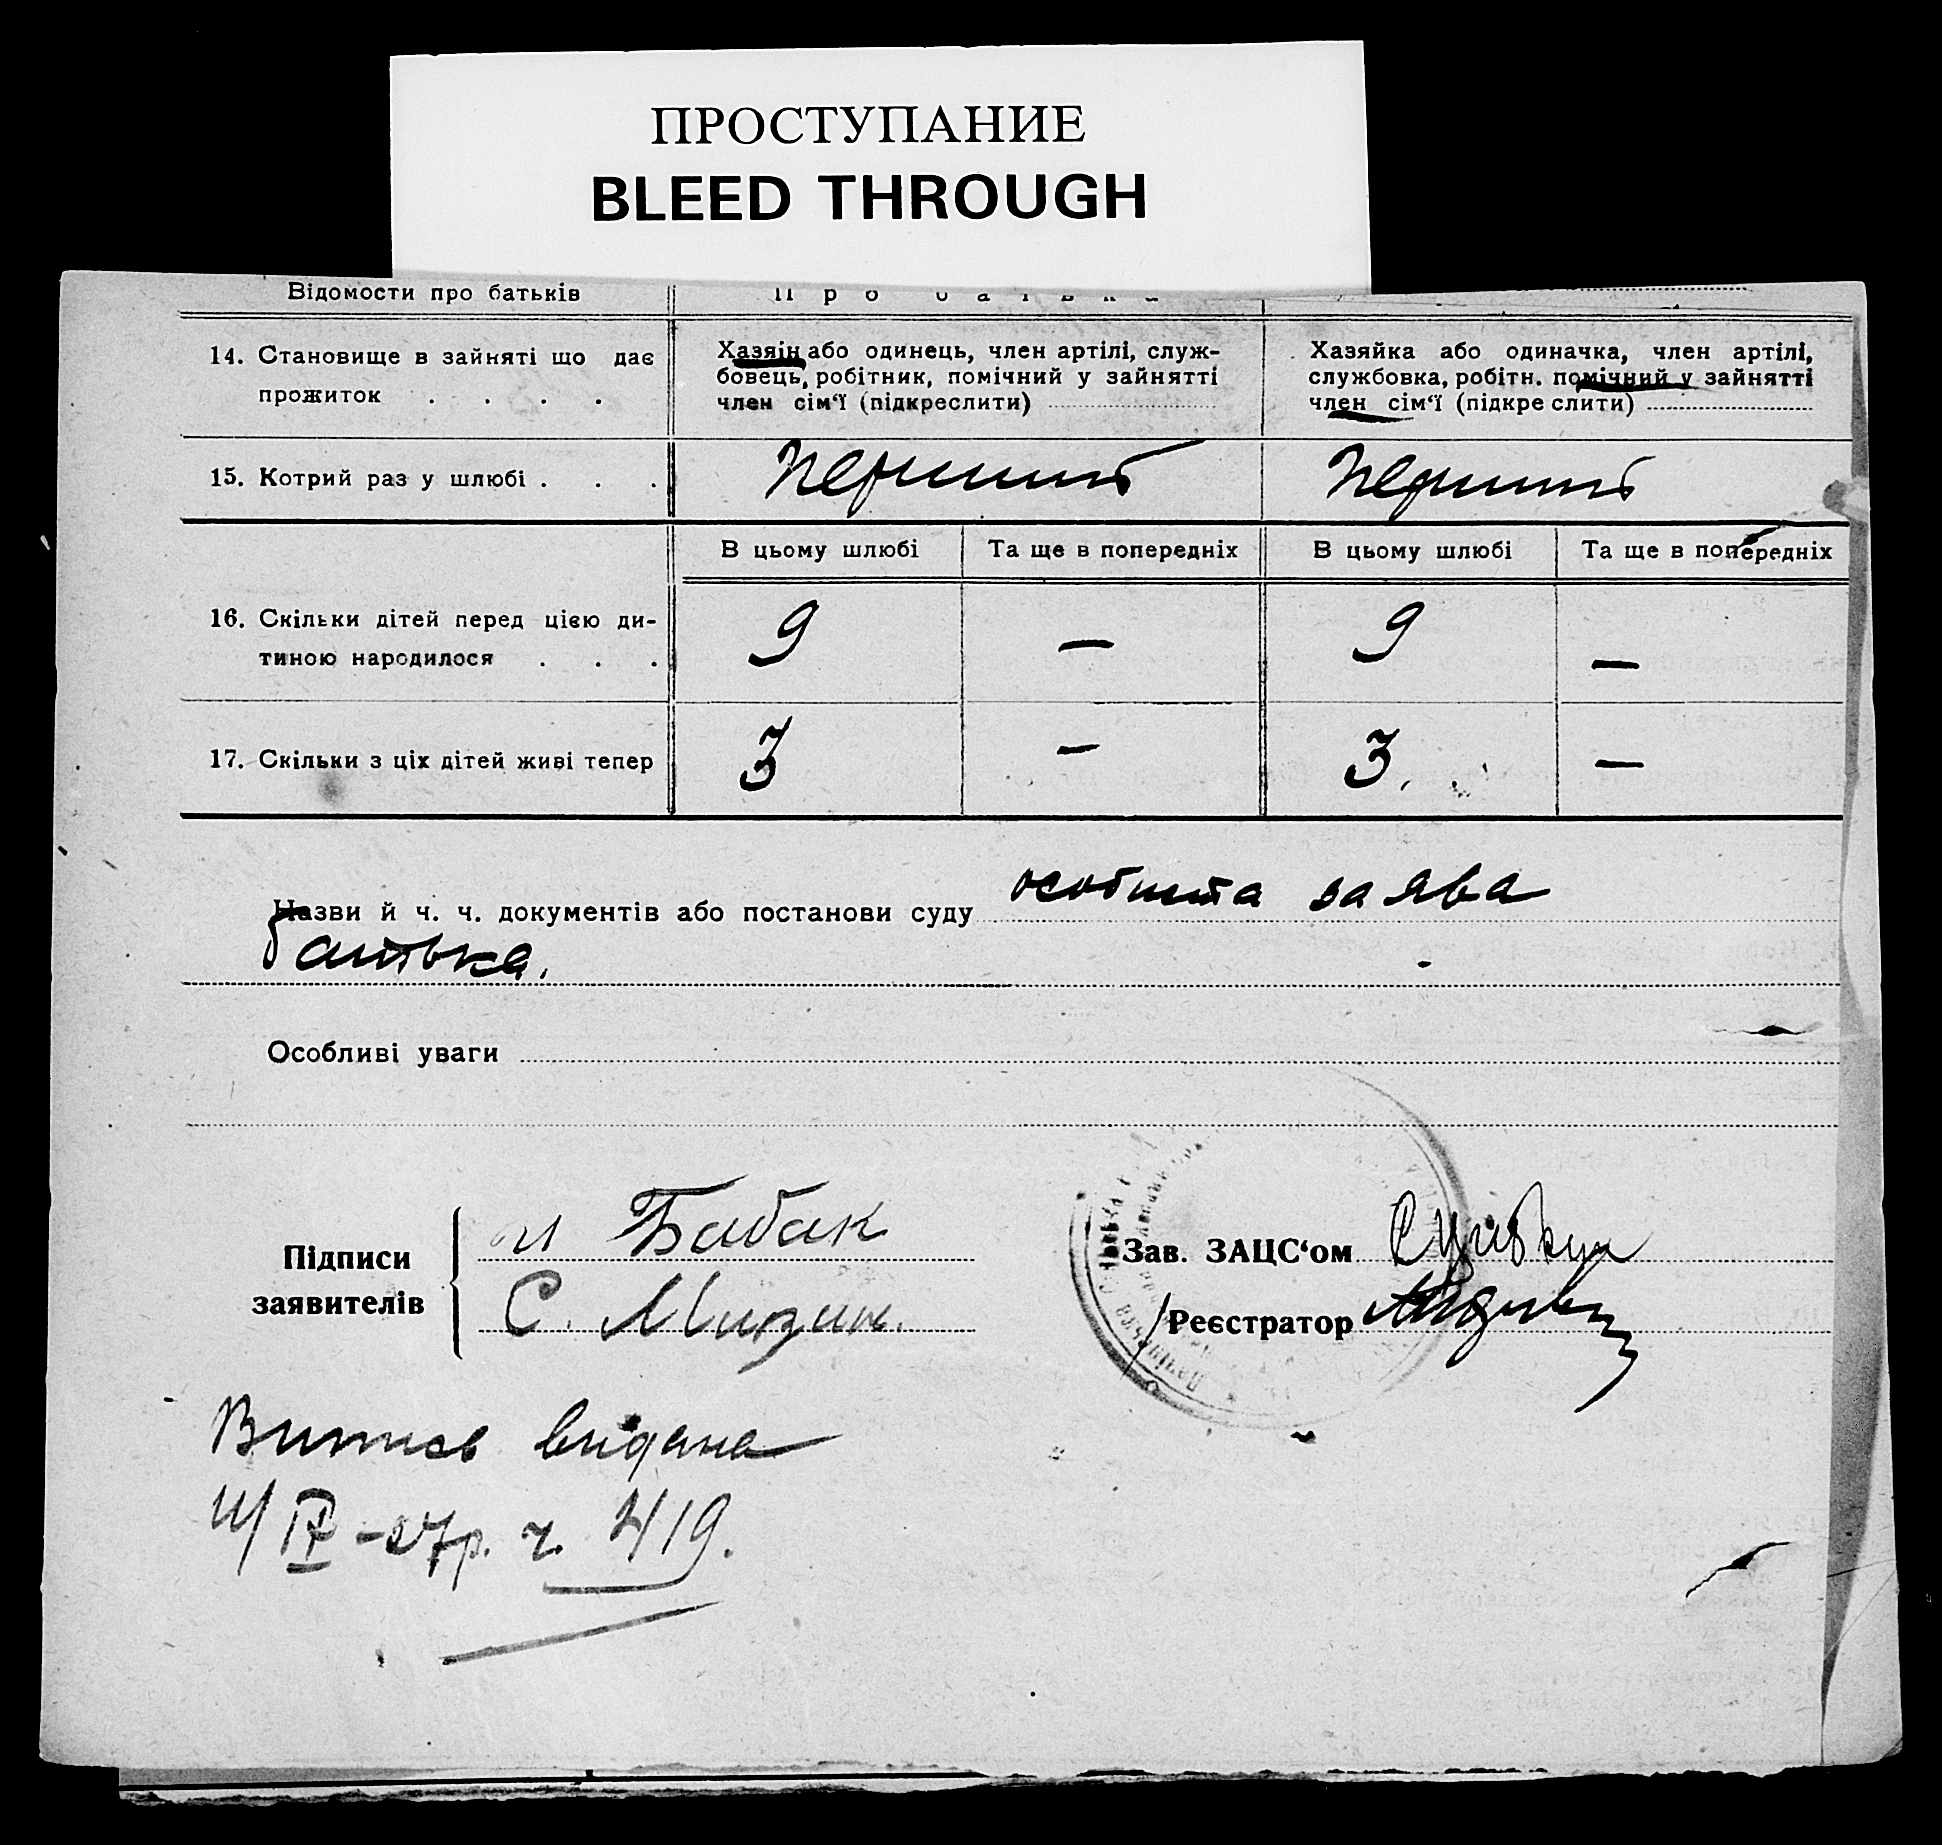 ПРОСТУПАНИЕ
BLEED THROUGH
Відомости про батьків
14. Становище в зайняті що дає
прожиток . . . .
Хазяін або одинець, член артілі, служ-
бовець, робітник, помічний у зайнятті
член сім‘ї (підкреслити)
Хазяйка або одиначка, член артілі,
службовка, робітн. помічний у зайнятті
член сім‘ї (підкреслити)
15. Котрий раз у шлюбі . . .
перший
перший
В цьому шлюбі
Та ще в попередніх
В цьому шлюбі
Та ще в попередніх
16. Скільки дітей перед цією ди-
тиною народилося . . .
9
—
9
—
17. Скільки з ціх дітей живі тепер
3
—
3.
—
Назви й ч. ч. документів або постанови суду особиста заява
батька.
Особливі уваги
Підписи
заявителів
Бабак
С. Мизин.
Зав. ЗАЦС‘ом
Реєстратор
Витись видана
ч. 419.